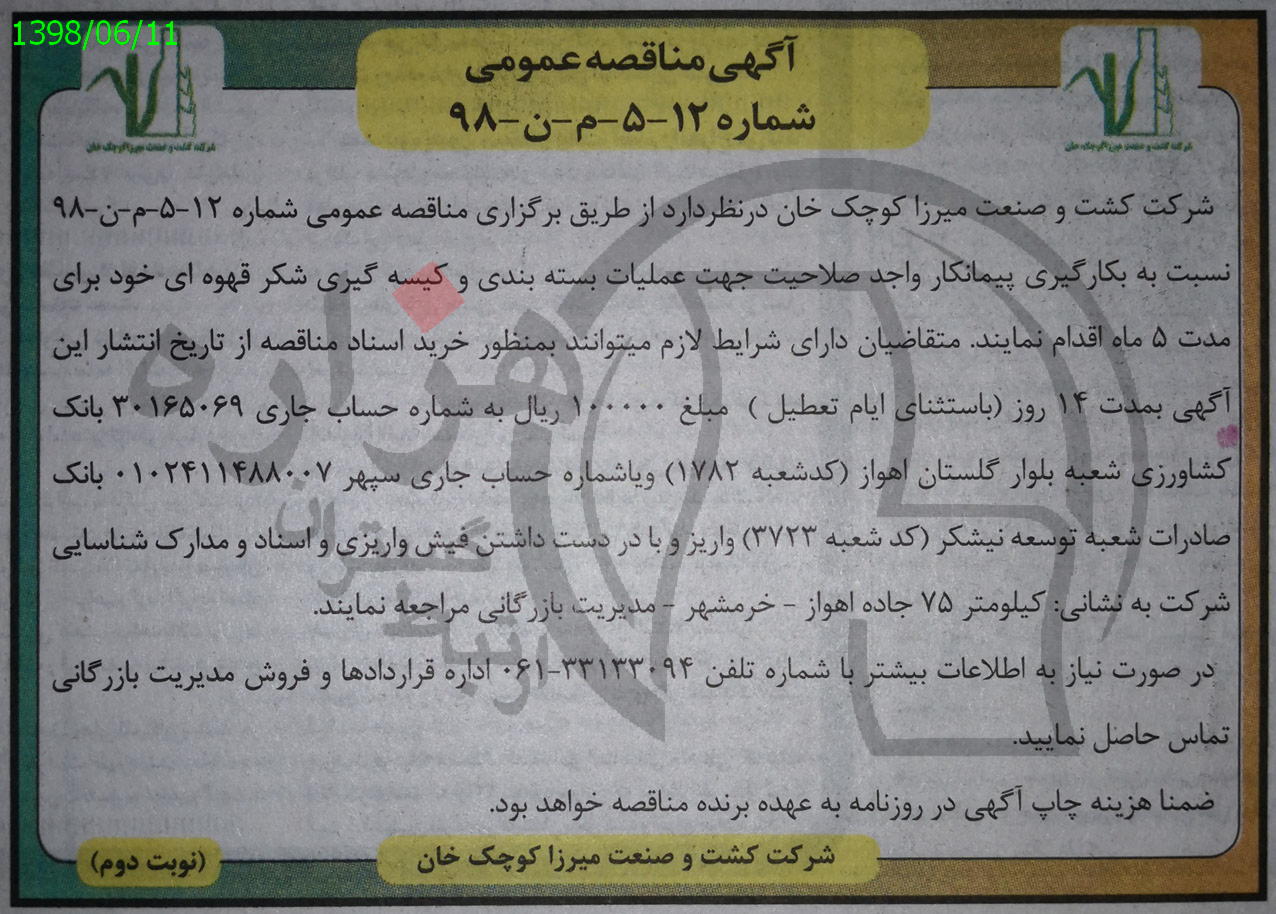 1398/06/11
آگهی مناقصه عمومی
شماره ۱۲-۵-م-ن-۹۸
شرکت کشت و صنعت میرزا کوچک خان
شرکت کشت و صنعت میرزا کوچک خان
شرکت کشت و صنعت میرزا کوچک خان درنظردارد از طریق برگزاری مناقصه عمومی شماره ۱۲-۵-م-ن-۹۸
نسبت به بکارگیری پیمانکار واجد صلاحیت جهت عملیات بسته بندی و کیسه گیری شکر قهوه ای خود برای
مدت ۵ ماه اقدام نمایند. متقاضیان دارای شرایط لازم میتوانند بمنظور خرید اسناد مناقصه از تاریخ انتشار این
آگهی بمدت ۱۴ روز (باستثنای ایام تعطیل ) مبلغ ۱۰۰۰۰۰۰ ریال به شماره حساب جاری ۳۰۱۶۵۰۶۹ بانک
کشاورزی شعبه بلوار گلستان اهواز (کدشعبه ۱۷۸۲) ویاشماره حساب جاری سپهر ۰۱۰۲۴۱۱۴۸۸۰۰۷ بانک
صادرات شعبه توسعه نیشکر (کد شعبه ۳۷۲۳) واریز و با در دست داشتن فیش واریزی و اسناد و مدارک شناسایی
شرکت به نشانی: کیلومتر ۷۵ جاده اهواز - خرمشهر - مدیریت بازرگانی مراجعه نمایند.
در صورت نیاز به اطلاعات بیشتر با شماره تلفن ۳۳۱۳۳۰۹۴-۰۶۱ اداره قراردادها و فروش مدیریت بازرگانی
تماس حاصل نمایید.
ضمنا هزینه چاپ آگهی در روزنامه به عهده برنده مناقصه خواهد بود.
شرکت کشت و صنعت میرزا کوچک خان
(نوبت دوم)
هزاره
ارتباط
گستران